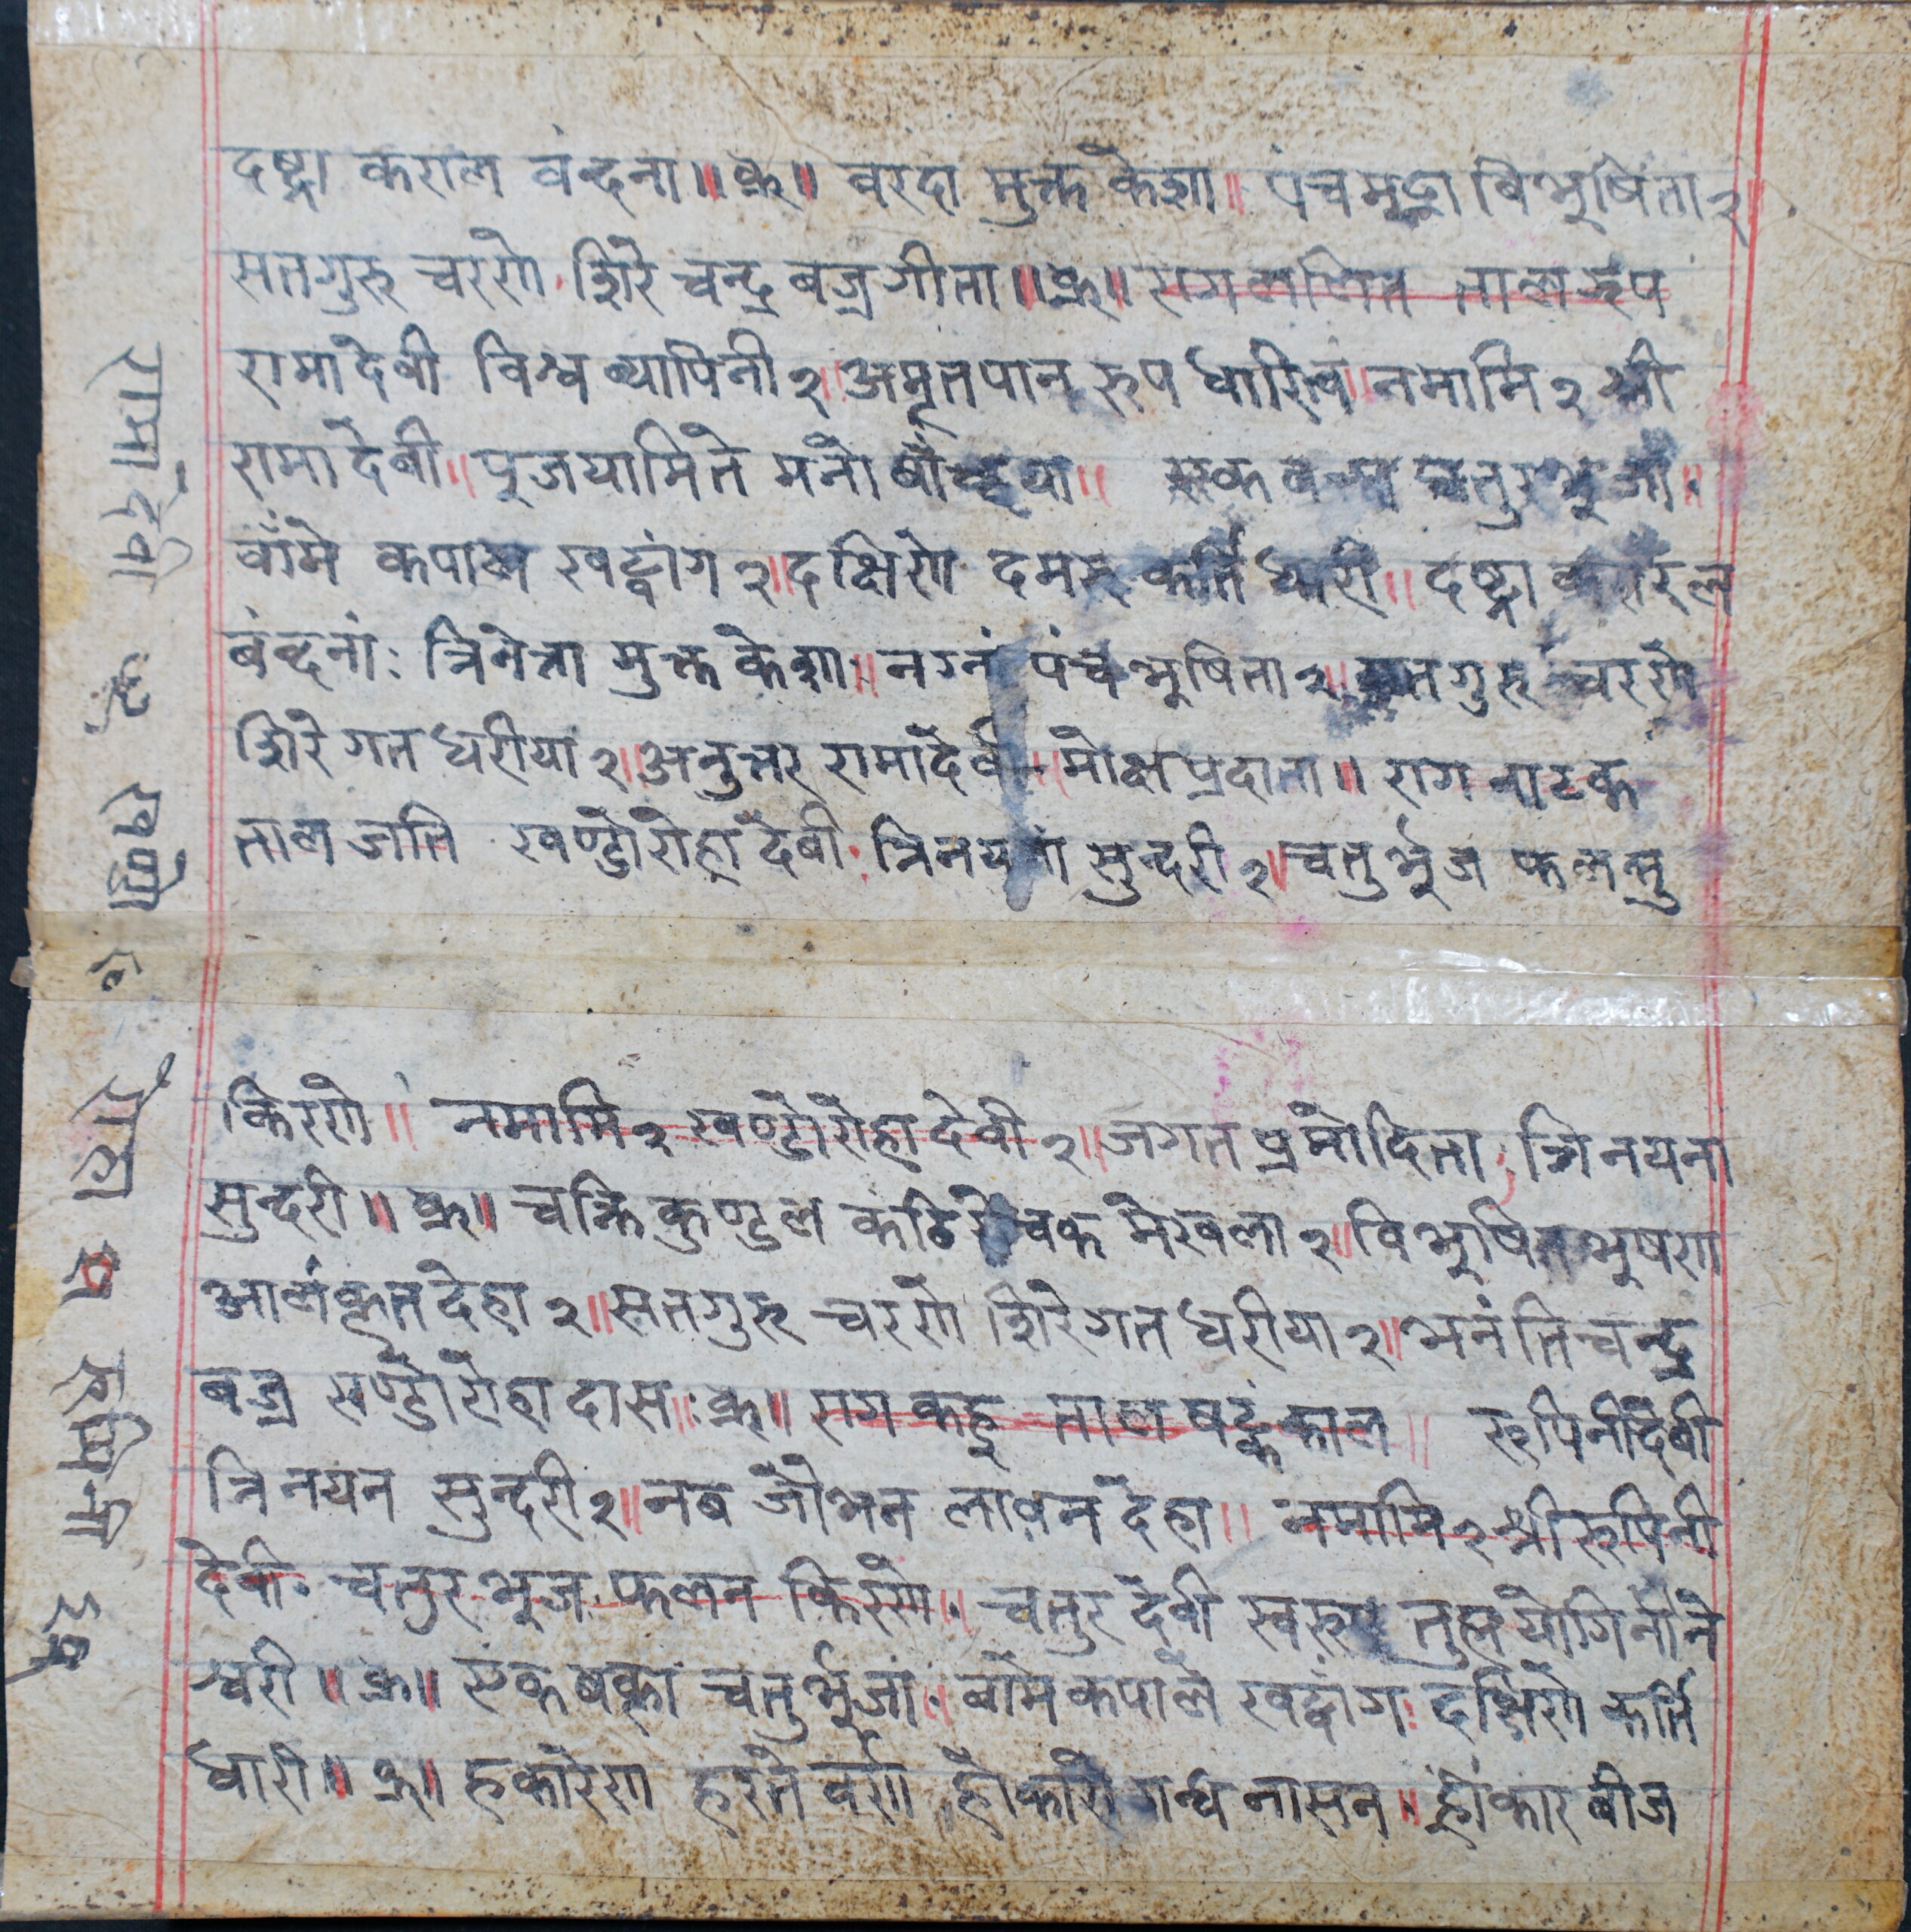 दष्ट्रा कराल वंन्दना॥ क्र॥ वरदा मुक्त केशा॥ पंचमूद्रा विभूषिता २
सतगुरु चरणे शिरे चन्द्र बज्र गीता॥ क्र॥ राग ललित ताल झप
रामा देवी विश्व व्यापिनी २॥ अमृत पान रुप धारित्वं॥ नमामि २ श्री
रामा देवी॥ पूजयामिते मनो॥ एक चतुर भूजां॥
वांमे कपाल खट्वांग २॥ दक्षिणे दमरु कर्ति धारी॥ दष्ट्रा
बंन्दनां: त्रिनेत्रा मुक्त केशा॥ नग्नं पंच भूषिता २॥ सतगुरु चरणे
शिरे गत धरीया २॥ अनुत्तर रामादेवी॥ मोक्ष प्रदाता॥ राग नाटक
ताल जति खण्डोरोहा देवी: त्रिनयना सुन्दरी २॥ चतुर्भूज फलन्तु
किरणे॥ नमामि २ खण्डोरोहा देवी २॥ जगत प्रमोदिता, त्रिनयना
सुन्दरी॥ क्र॥ चक्रि कुण्डल कठि मेखला २॥ विभूषित भूषणा
आलंकृत देहा २॥ सतगुरु चरणे शिरे गत धरीया २॥ भनंति चन्द्र
बज्र खण्डोरोहा दास: क्र॥ राग कहु ताल षट्कंकाल॥ रूपिनीदेवी
त्रिनयन सुन्दरी २॥ नब जोभन लावन देहा॥ नमामि २ श्री रूपिनी
देवी. चतुर भूज फलन किरणे॥ चतुर देवी स्वरूप योगिनीने
श्वरी॥ क्र॥ एक बक्त्रा चतुर्भूजां॥ वांमे कपाले खट्वांग: दक्षिणे कर्ति
धारी॥ क्र॥ हकारेणा हरते वर्णा, होकारो गन्ध नासन॥ ह्रींकार बीज
रामादेवी
खण्डो
रोहा
रूपिनी